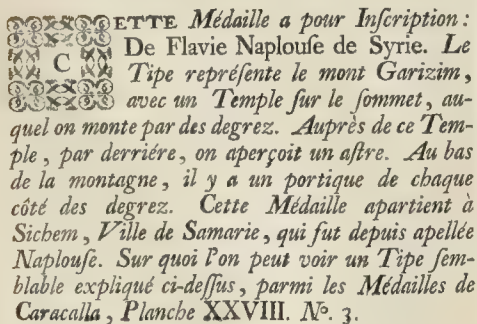 CETTE Médaille a pour Inſcription :
De Flavie Naplouſe de Syrie. Le
Tipe repréſente le mont Garizim,
avec un Temple ſur le ſommet, au-
quel on monte par des degrez. Auprès de ce Tem-
ple, par derriére, on aperçoit un aſtre. Au bas
de la montagne, il y a un portique de chaque
côté des degrez. Cette Médaille apartient à
Sichem, Ville de Samarie, qui fut depuis apellée
Naplouſe. Sur quoi l'on peut voir un Tipe ſem-
blable expliqué ci-deſſus, parmi les Médailles de
Caracalla, Planche XXVIII. Nº. 3.